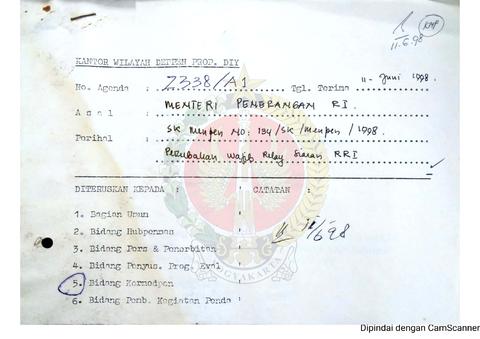 1
11.6.98
KMP
KANTOR WILAYAH DEPPEN PROP. DIY
No. Agenda : 2338/A1 Tgl. Terima : 11 - Juni 1998.
A s a l : MENTERI PENERANGAN RI.
Perihal : SK Menpen NO: 134/SK/Menpen/1998.
Perubahan Wajib Relay Siaran RRI
DITERUSKAN KEPADA : CATATAN :
1. Bagian Umum
2. Bidang Hubpenmas
3. Bidang Pers & Penerbitan
4. Bidang Penyus. Prog. Eval
5. Bidang Kermodpen
6. Bidang Pemb. Kegiatan Penda
6-98
YOGYAKARTA
Dipindai dengan CamScanner